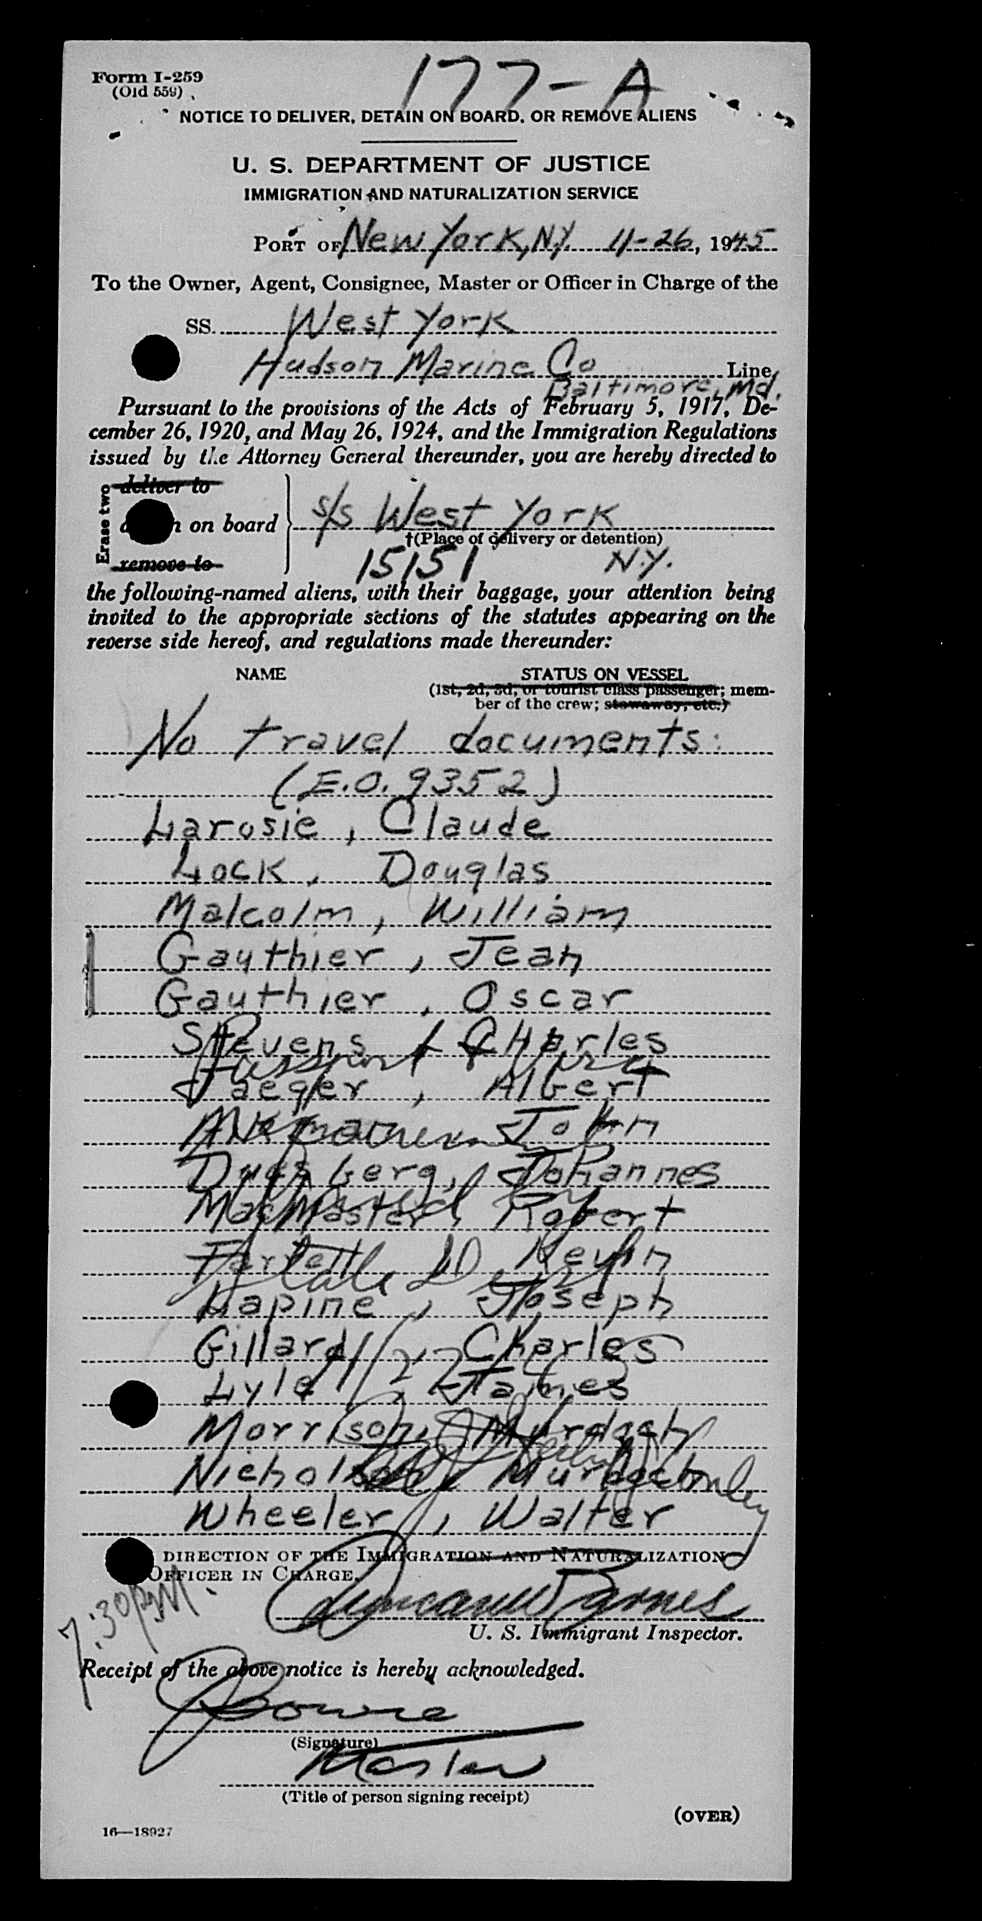 177-A
Form I-259
(Old 559)
NOTICE TO DELIVER, DETAIN ON BOARD, OR REMOVE ALIENS
U. S. DEPARTMENT OF JUSTICE
IMMIGRATION AND NATURALIZATION SERVICE
PORT OF New York, N.Y. 11-26, 1945
To the Owner, Agent, Consignee, Master or Officer in Charge of the
SS. West York
Hudson Marine Co Line,
Baltimore, Md.
Pursuant to the provisions of the Acts of February 5, 1917, De-
cember 26, 1920, and May 26, 1924, and the Immigration Regulations
issued by the Attorney General thereunder, you are hereby directed to
Erase two
deliver to
on board
remove to
s/s West York
†(Place of delivery or detention)
15151 N.Y.
the following-named aliens, with their baggage, your attention being
invited to the appropriate sections of the statutes appearing on the
reverse side hereof, and regulations made thereunder:
NAME STATUS ON VESSEL
(1st, 2d, 3d, or tourist class passenger; mem-
ber of the crew; stowaway, etc.)
No travel documents:
(E.O. 9352)
Larosie, Claude
Lock, Douglas
Malcolm, William
Gauthier, Jean
Gauthier, Oscar
Stevens, Charles
Passport
Jaeger, Albert
John
Duesberg, Johannes
MacMaster, Robert
by
Farrell, Kevin
State Dept
Lapine, Joseph
Gillard, Charles
11/27
Lyle, James
Morrison, Murdoch
Nicholson, Murdoch
Wheeler, Walter
DIRECTION OF THE IMMIGRATION AND NATURALIZATION
OFFICER IN CHARGE.
Duncan W Barnes
U. S. Immigrant Inspector.
7:30 PM.
Receipt of the above notice is hereby acknowledged.
Bowie
(Signature)
Master
(Title of person signing receipt)
(OVER)
16—18927